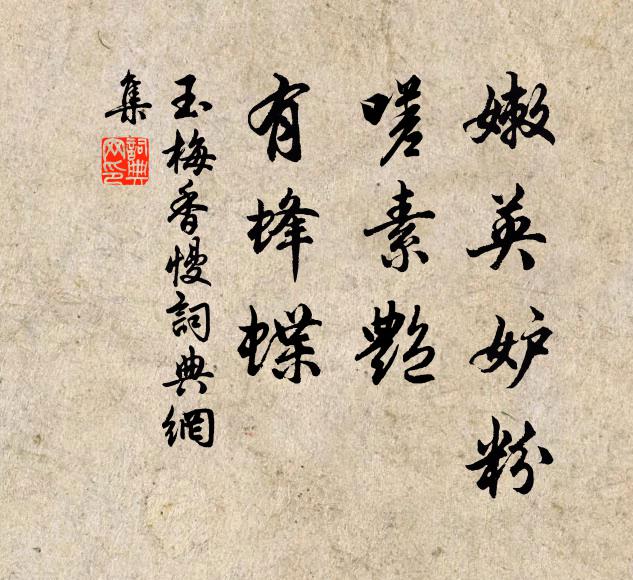 嫩英妒粉
嗟素艷
有蜂蝶
玉梅香慢詞典網
集
詞典
網印